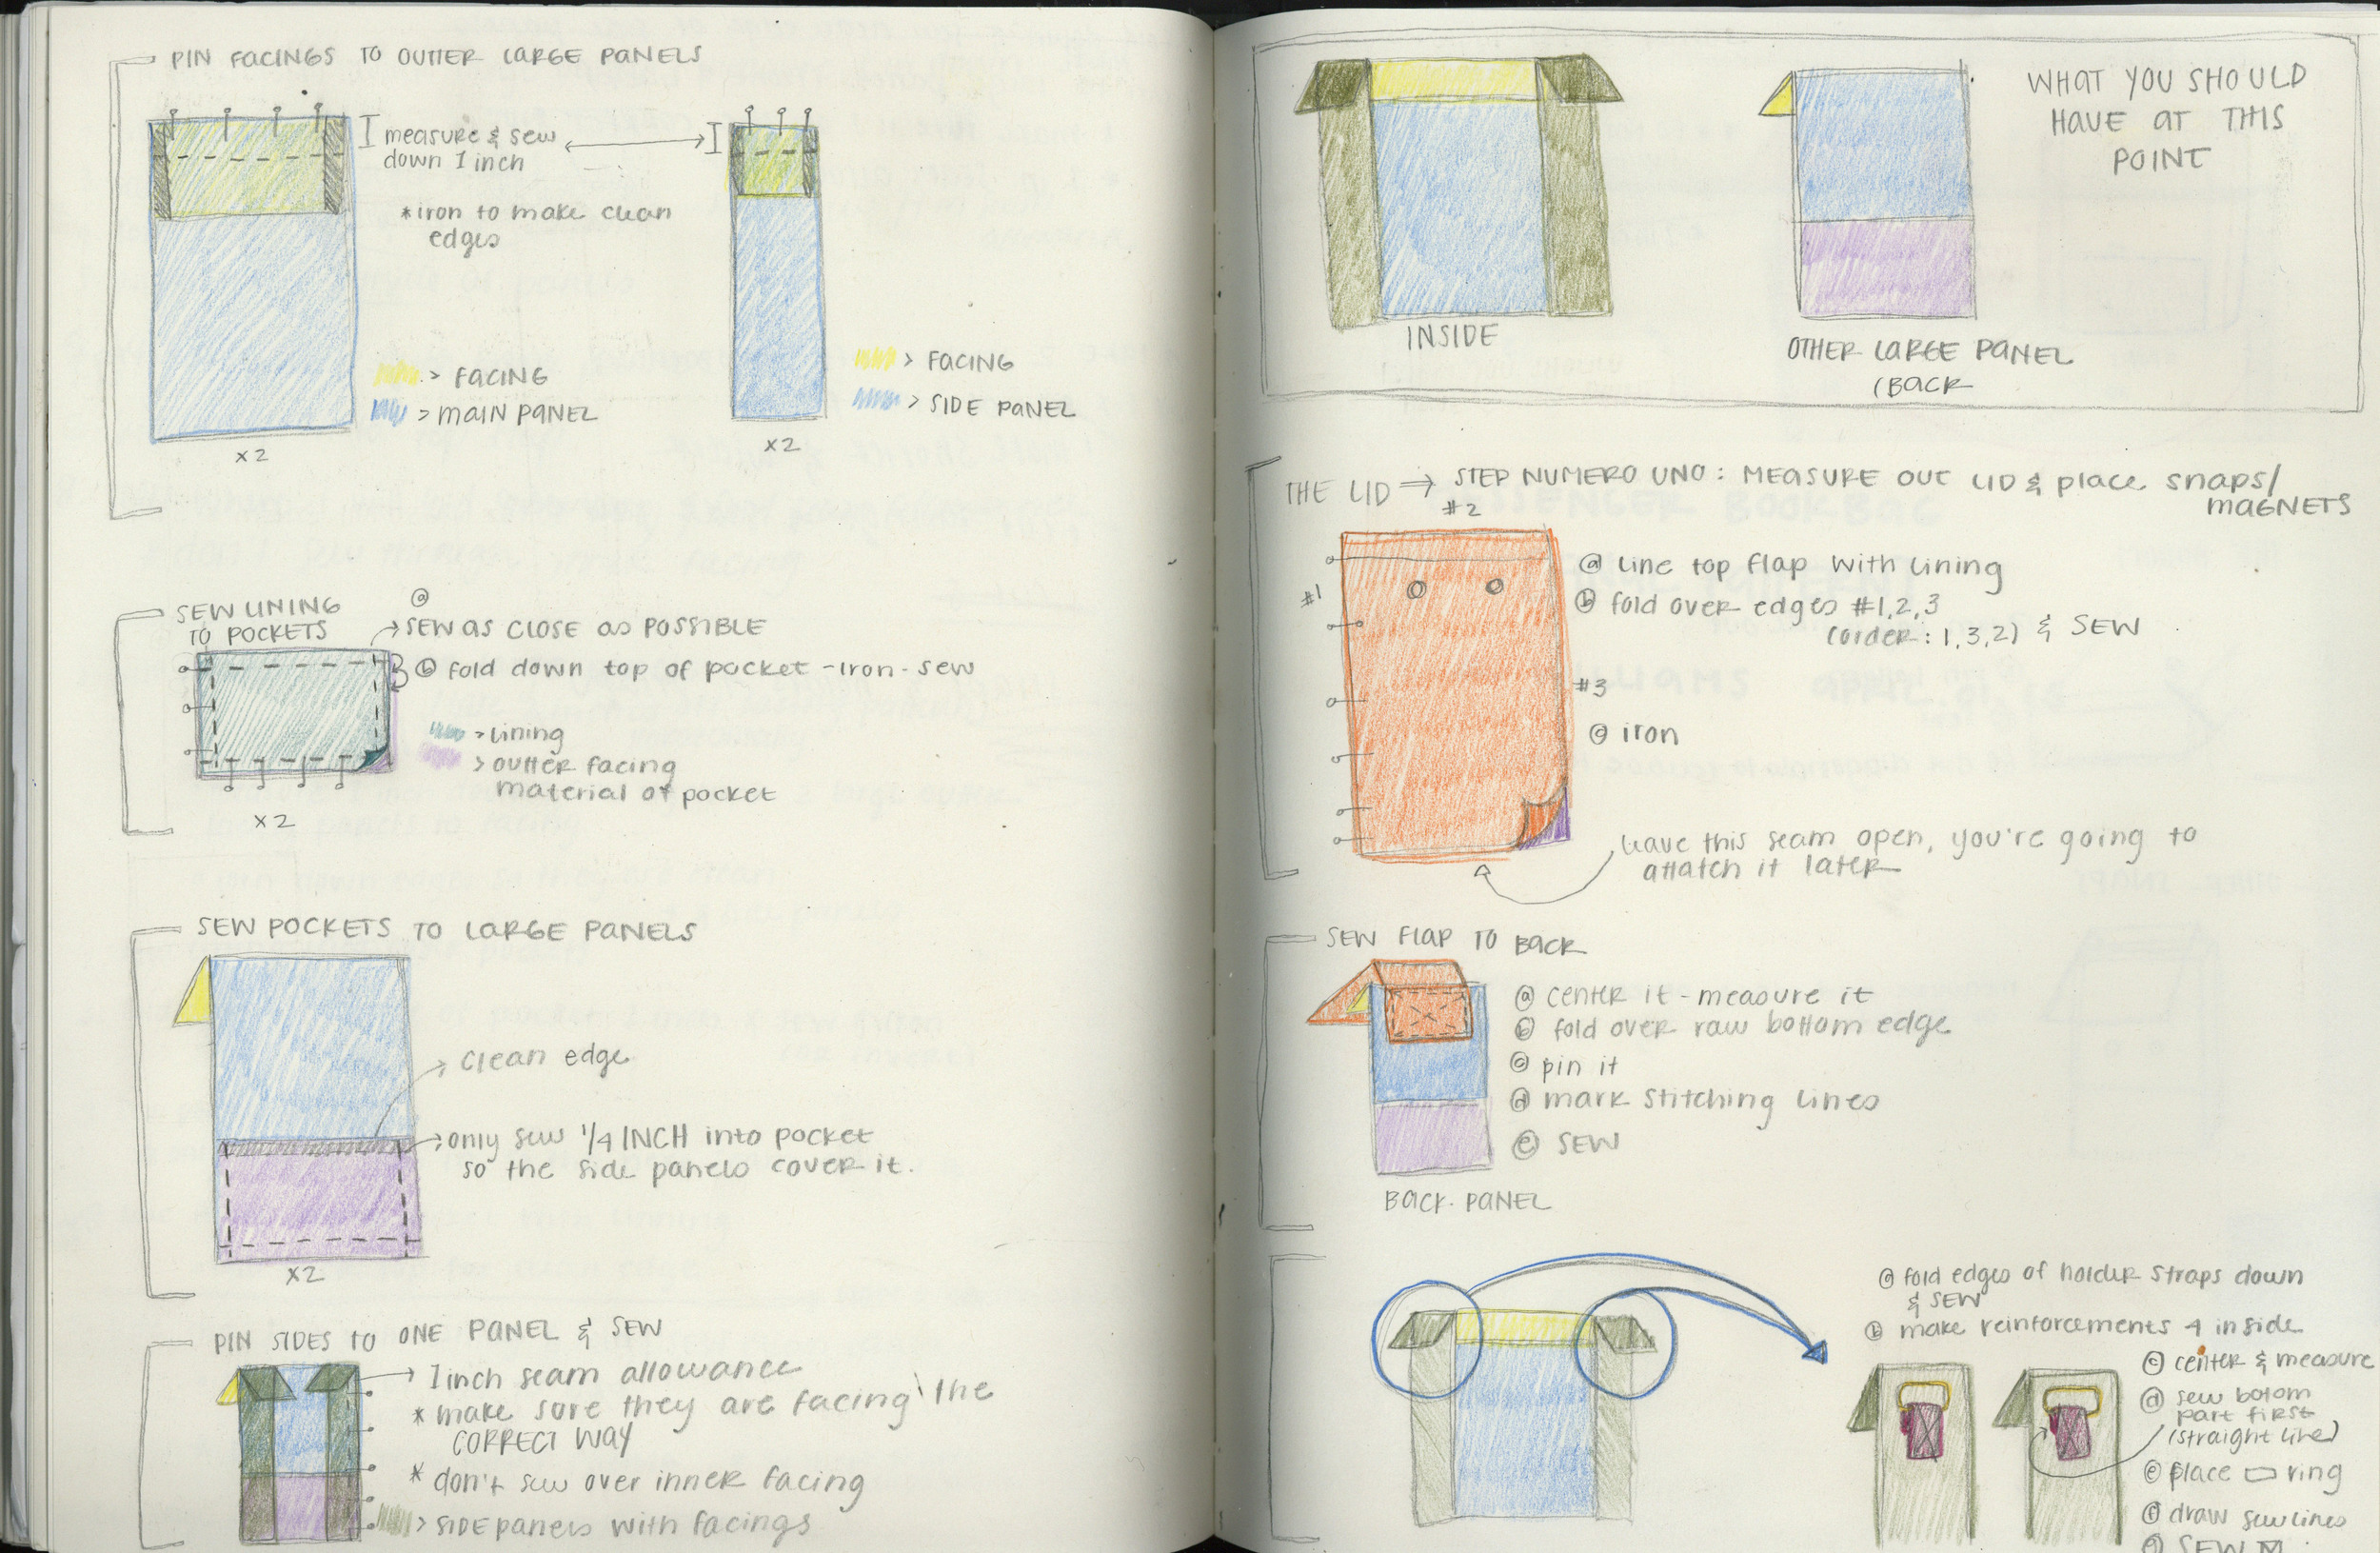 PIN FACINGS TO OUTTER LARGE PANELS
measure & sew
down 1 inch
*iron to make clean
edges
> FACING
> MAIN PANEL
x2
> FACING
> SIDE PANEL
x2
SEW LINING
TO POCKETS
ⓐ
SEW AS CLOSE AS POSSIBLE
ⓑ fold down top of pocket - iron - sew
> lining
> outter facing
material of pocket
x2
SEW POCKETS TO LARGE PANELS
clean edge
only sew 1/4 INCH into pocket
so the side panels cover it.
x2
PIN SIDES TO ONE PANEL & SEW
1 inch seam allowance
* make sure they are facing the
CORRECT WAY
* don't sew over inner facing
> SIDE panels with facings
INSIDE
OTHER LARGE PANEL
(BACK
WHAT YOU SHOULD
HAVE AT THIS
POINT
THE LID → STEP NUMERO UNO: MEASURE OUT LID & place snaps/
MAGNETS
#2
#1
#3
ⓐ line top flap with lining
ⓑ fold over edges #1,2,3
(order: 1,3,2) & SEW
ⓒ iron
leave this seam open, you're going to
attatch it later
SEW FLAP TO BACK
ⓐ center it - measure it
ⓑ fold over raw bottom edge
ⓒ pin it
ⓓ mark stitching lines
ⓔ SEW
BACK PANEL
ⓐ fold edges of holder straps down
& SEW
ⓑ make reinforcements 4 inside
ⓒ center & measure
ⓓ sew botom
part first
(straight line)
ⓔ place ▭ ring
ⓕ draw sew lines
ⓖ SEW